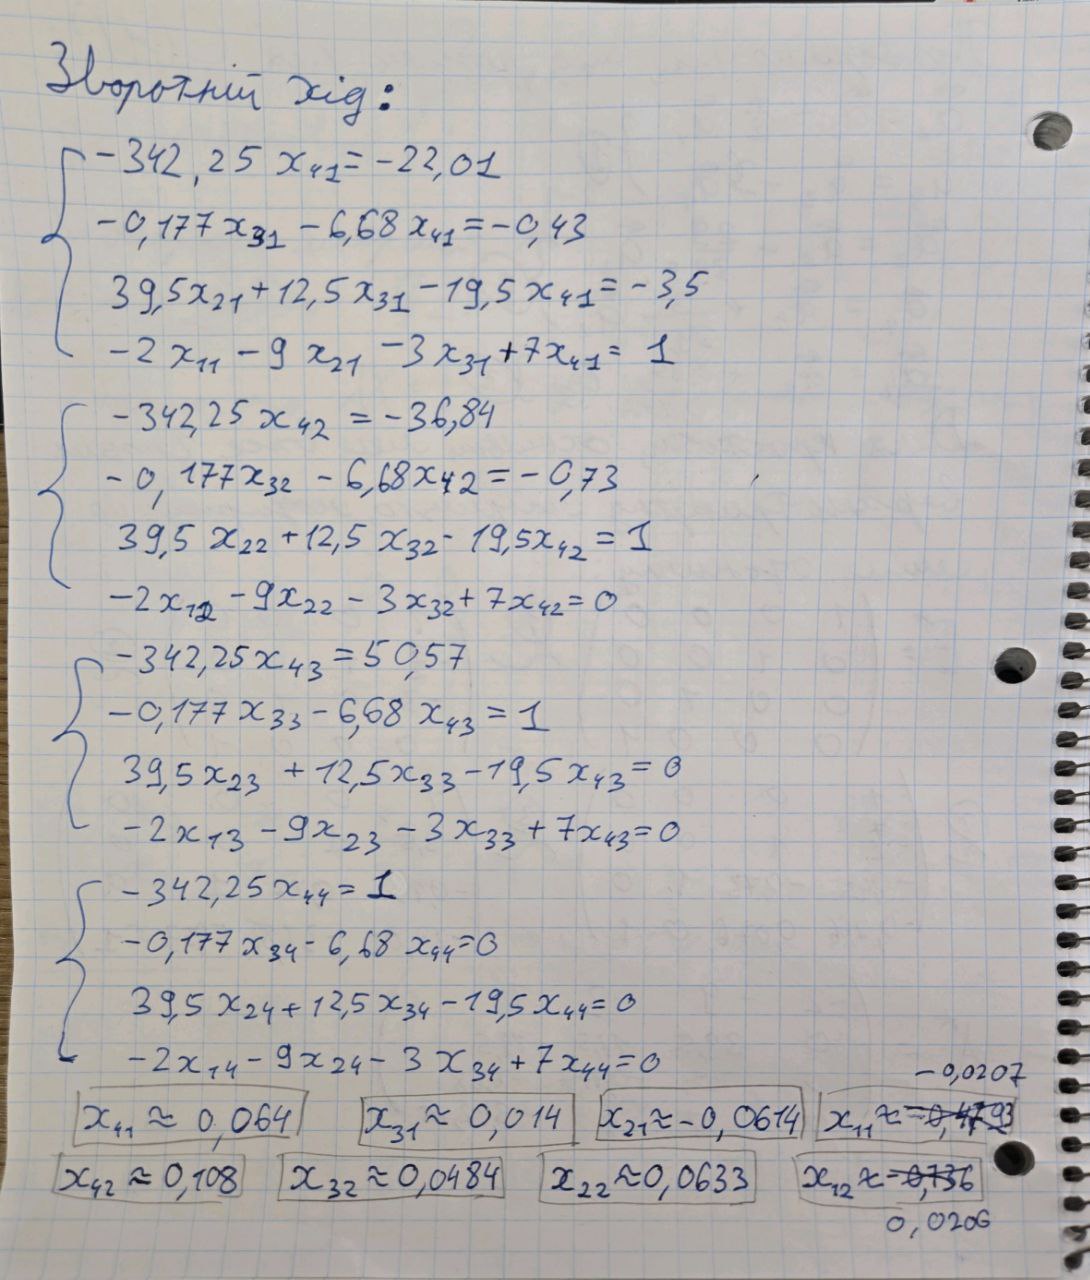 Зворотній хід:
-342,25 x₄₁ = -22,01
-0,177 x₃₁ - 6,68 x₄₁ = -0,43
39,5x₂₁ + 12,5 x₃₁ - 19,5 x₄₁ = -3,5
-2 x₁₁ - 9 x₂₁ - 3 x₃₁ + 7x₄₁ = 1
-342,25 x₄₂ = -36,84
-0,177x₃₂ - 6,68x₄₂ = -0,73
39,5 x₂₂ + 12,5 x₃₂ - 19,5x₄₂ = 1
-2x₁₂ - 9x₂₂ - 3x₃₂ + 7x₄₂ = 0
-342,25x₄₃ = 50,57
-0,177x₃₃ - 6,68 x₄₃ = 1
39,5x₂₃ + 12,5x₃₃ - 19,5x₄₃ = 0
-2x₁₃ - 9x₂₃ - 3x₃₃ + 7x₄₃ = 0
-342,25x₄₄ = 1
-0,177x₃₄ - 6,68 x₄₄ = 0
39,5x₂₄ + 12,5x₃₄ - 19,5x₄₄ = 0
-2x₁₄ - 9x₂₄ - 3x₃₄ + 7x₄₄ = 0
-0,0207
x₄₁ ≈ 0,064 x₃₁ ≈ 0,014 x₂₁ ≈ -0,0614 x₁₁ ≈
x₄₂ ≈ 0,108 x₃₂ ≈ 0,0484 x₂₂ ≈ 0,0633 x₁₂ ≈ -0,736
0,0206